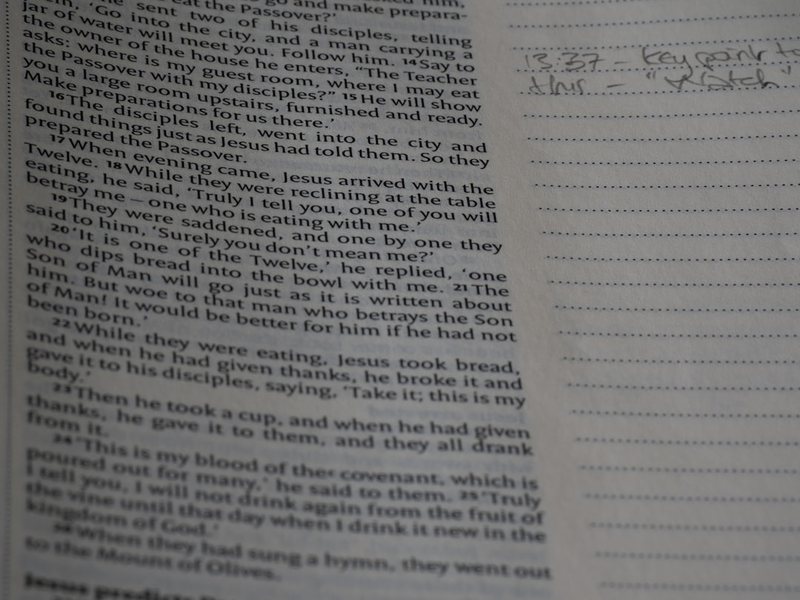 eat the Passover?'
go and make prepara-
sent two of his disciples, telling
'Go into the city, and a man carrying a
jar of water will meet you. Follow him. 14 Say to
the owner of the house he enters, "The Teacher
asks: where is my guest room, where I may eat
the Passover with my disciples?" 15 He will show
you a large room upstairs, furnished and ready.
Make preparations for us there.'
16 The disciples left, went into the city and
found things just as Jesus had told them. So they
prepared the Passover.
17 When evening came, Jesus arrived with the
Twelve. 18 While they were reclining at the table
eating, he said, 'Truly I tell you, one of you will
betray me – one who is eating with me.'
19 They were saddened, and one by one they
said to him, 'Surely you don't mean me?'
20 'It is one of the Twelve,' he replied, 'one
who dips bread into the bowl with me. 21 The
Son of Man will go just as it is written about
him. But woe to that man who betrays the Son
of Man! It would be better for him if he had not
been born.'
22 While they were eating, Jesus took bread,
and when he had given thanks, he broke it and
gave it to his disciples, saying, 'Take it; this is my
body.'
23 Then he took a cup, and when he had given
thanks, he gave it to them, and they all drank
from it.
24 'This is my blood of the covenant, which is
poured out for many,' he said to them. 25 'Truly
I tell you, I will not drink again from the fruit of
the vine until that day when I drink it new in the
kingdom of God.'
26 When they had sung a hymn, they went out
to the Mount of Olives.
Jesus predicts
13:37 – key point to
this – "Watch"